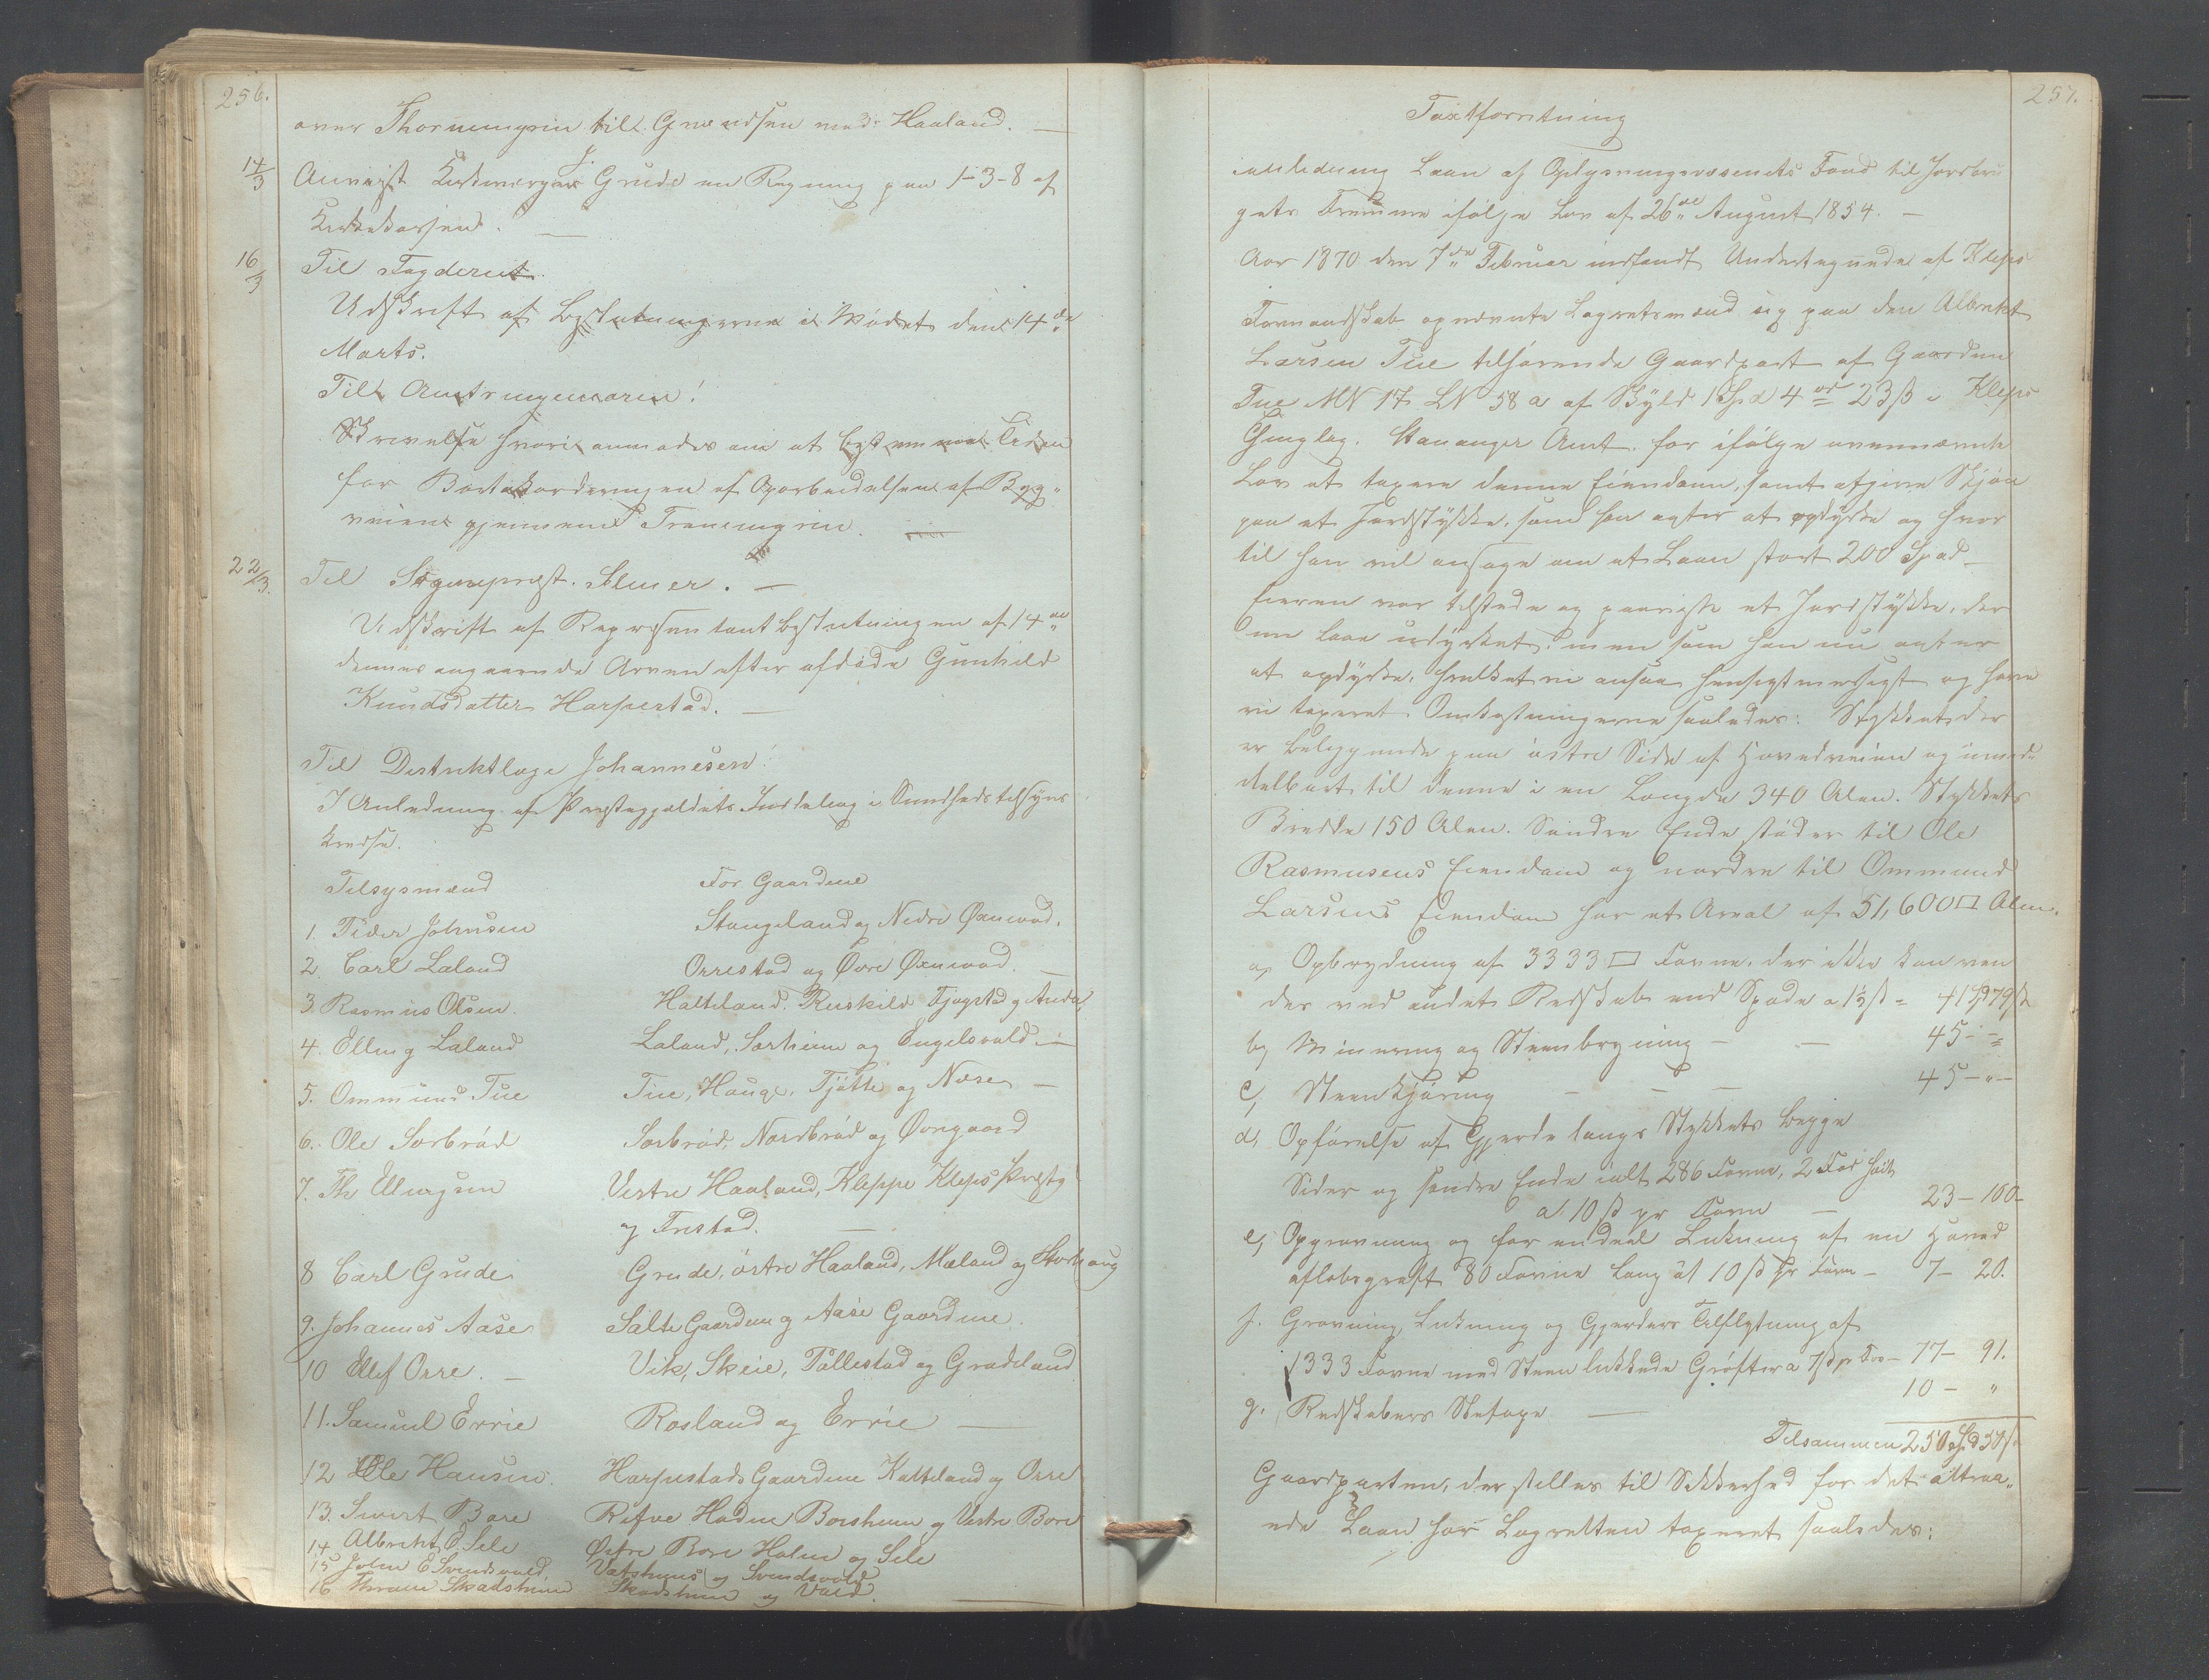 256.
over Thornemyrin till Grændsen med Haaland. —
14/3 Anvist Kirkeværgen J. Grude en Regning paa 1-3-8 af
Kirkekassen. —
16/3 Til Fogderiet.
Udskrift af Beslutningerne i Mødet den 14de
Marts.
Til Amtsingeniøren!
Skrivelse hvori anmodes om at bestemme Tiden
for Bortakorderingen af Oparbeidelsen af Byg-
veien gjennem Tranemyrin.
22/3. Til Sognepræst. —
Udskrift af Repræsentantbeslutningen af 14de
dennes angaaende Arven efter afdøde Gunhild
Knudsdatter Harpestad. —
Til Distriktlæge Johannesen!
I Anledning af Præstegjældets Inddeling i Sundhedstilsyns
kredse.
Tilsysmænd For Gaardene
1. Peder Johnsen Stangeland og Nedre Øxnevad.
2. Carl Laland Orrestad og Øvre Øxnevad. —
3. Rasmus Olsen. Halteland. Kuskild Tjøgstad og Anda.
4. Elling Laland Laland, Sørheim og Engelsvold. —
5. Ommund Tue Tue, Hauge, Tjøtte og Næse —
6. Ole Sørbrød Sørbrød, Nordbrød og Øvregaard
7. Th Ellingsen Vestre Haaland, Kleppe Kleps Præstg
og Frestad. —
8 Carl Grude Grude, østre Haaland, Mæland og Storhaug
9. Johannes Aase Salte Gaardene og Aase Gaardene.
10 Ellef Orre. — Vik, Skeie, Tållestad og Grudeland
11. Samuel Errie Rosland og Errie —
12 Ole Hansen. Harpestads Gaardene Kalteland og Orre
13. Sivert Bore Refve Hodne Boesheim og Vestre Bore
14. Albrekt O. Sele Østre Bore Holen og Sele
15 John E Svendsvold. Vatshuus og Svendsvold
16 Skadsheim Skadsheim og Vold. —
257.
Taxtforretning
Laan af Oplysningsvæsenets Fond til Jordbru
gets Fremme ifølge Lov af 26de August 1854. —
Aar 1870 den 7de Februar indfandt Undertegnede af Kleps
Formandskab opnævnte Lagretsmænd sig paa den Albrekt
Larsen Tue tilhørende Gaardpart af Gaarden
Tue MN 17 LN 58 a af Skyld 1 Spd 4 ort 23 ß i Kleps
Thinglag. Stavanger Amt. for ifølge ovennævnte
Lov at taxere denne Eiendom, samt afgive Skjøn
paa et Jordstykke, som han agter at opdyrke og hvor
til han vil ansøge om et Laan stort 200 Spd. —
Eieren var tilstede og paaviste et Jordstykke, der
nu laae udyrket, men som han nu agter
at opdyrke, hvilket vi ansaae hensigtmæssigt og have
vi taxeret Omkostningerne saaledes: Stykket der
er beliggende paa østre Side af Hovedveien og umid-
delbart til denne i en Længde 340 Alen. Stykkets
Bredde 150 Alen. Søndre Ende støder til Ole
Rasmusens Eiendom og nordre til Ommund
Larsens Eiendom har et Areal af 51,600 □ Alen.
a, Opbrydning af 3333 □ Favne, der ikke kan ven
des ved andet Redskab end Spade a 1½ ß =
b, Minering og Steenbrydning — — 45 - " -
c, Steenkjøring — — 45 - " -
d, Opførelse af Gjerde langs Stykkets begge
Sider og søndre Ende ialt 286 Favne, 2 Fod høit
a 10 ß pr Favn — 23 - 100
e, Opgravning og for endeel Lukning af en Hoved
afløbsgrøft 80 Favne lang at 10 ß pr Favn — 7 - 20.
f. Gravning, Lukning og Gjerders Tilflytning af
1333 Favne med Steen lukkede Grøfter a 7 ß pr Fv — 77 - 91.
g. Redskabers Slitage — 10 - "
Tilsammen
Gaardparten, der stilles til Sikkerhed for det attraa-
ede Laan har Lagretten taxeret saaledes: